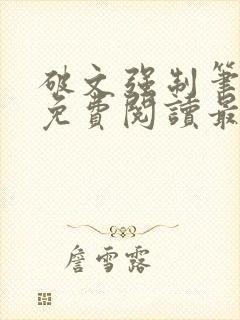 破文强制笔
免費閱讀最
詹雪露